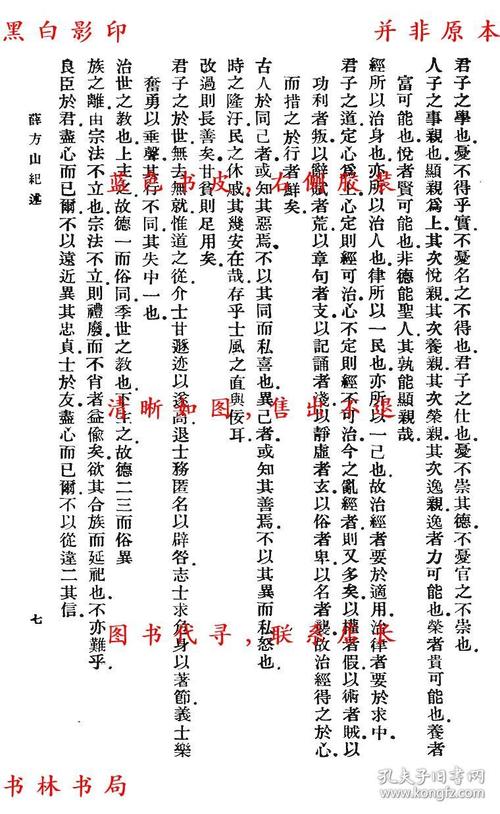 黑白影印
并非原本
君子之學也憂不得乎實不憂名之不得也君子之仕也憂不崇其德不憂官之不崇也
人子之事親也顯親爲上其次悅親其次養親其次榮親其次逸親逸者力可能也榮者貴可能也養者
富可能也悅者賢可能也非德能聖人其孰能顯親哉
經所以治身也亦所以治人也律所以一民也亦所以一己也故治經者要於適用治律者要於求中
君子之道定心爲上心定則經可治心不定則經不可治今之亂經者則又多矣以權者假以術者賊以
功利者叛以辭賦者荒以章句者支以記誦者淺以靜虛者玄以俗者卑以名者襲故治經得之於心
而措之於行者鮮矣
古人於同己者或知其惡焉不以其同而私喜也異己者或知其善焉不以其異而私怒也
時之隆汙民之休戚其幾安在哉存乎士風之直與佞耳
改過則長善矣甘貧則足用矣
君子之於世無去無就惟道之從介士甘遯迹以遂高退士務匿名以辟咎志士求危身以著節義士樂
奮勇以垂聲其行不同其失中一也
治世之教也上主之故德一而俗同季世之教也下主之故德二三而俗異
族之離由宗法不立也宗法不立則禮廢而不肖者益偷矣欲其合族而延祀也不亦難乎
良臣於君盡心而已爾不以遠近異其忠貞士於友盡心而已爾不以從違二其信
薛方山紀述
七
蓝亮书皮，右侧胶装
清晰如图，售出不退
图书代寻，联系店长
书林书局
孔夫子旧书网
kongfz.com